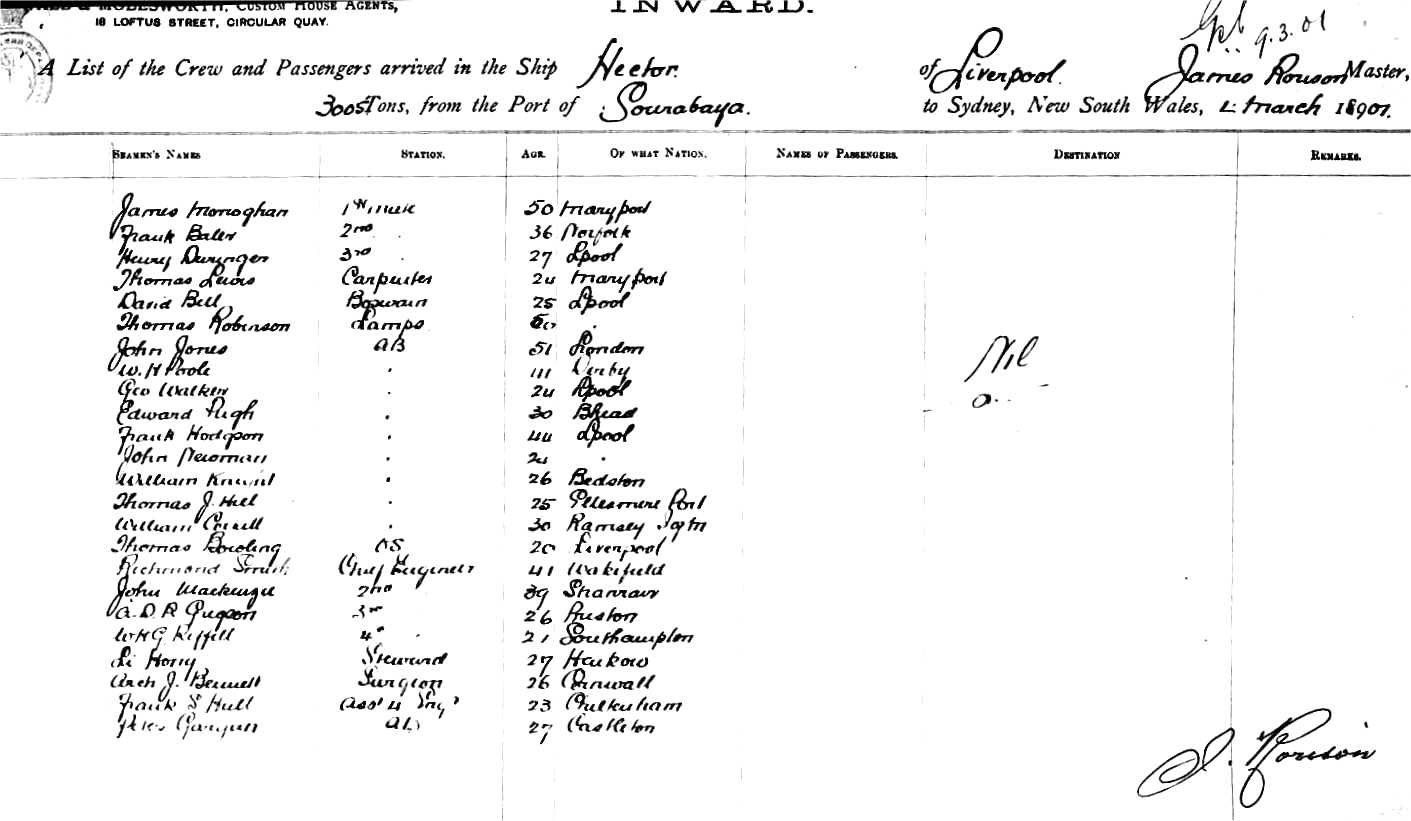 MOLESWORTH, CUSTOM HOUSE AGENTS,
18 LOFTUS STREET, CIRCULAR QUAY.
INWARD.
9.3.01
A List of the Crew and Passengers arrived in the Ship Hector. of Liverpool. James Rowson Master,
3005 Tons, from the Port of Sourabaya. to Sydney, New South Wales, March 1901.
SEAMEN'S NAMES STATION. AGE. OF WHAT NATION. NAMES OF PASSENGERS. DESTINATION REMARKS.
James Monoghan 1st Mate 50 Maryport
Frank 2nd 36 Norfolk
Henry 3rd 27 Lpool
Thomas Lewis Carpenter 24 Maryport
David Bell Boswain 25 Lpool
Thomas Robinson Lamps
John Jones AB 51 London
W. H Poole . Derby
Geo Walker . 24 Lpool
Edward Pugh . 30 Bhead
Frank Hodgson . 44 Lpool
John Newman . 24 .
William . 26 Bedston
Thomas J. Hill . 25 Ellesmere Port
William . 30 Ramsey
Thomas Bowling OS 20 Liverpool
Richmond Smith Chief Engineer 41 Wakefield
John Mackenzie 2nd 39
A. D. R 3rd 26 Preston
W H G 4th 21 Southampton
Li Hong Steward 27 Hankow
Arch J. Bennett Surgeon 26 Cornwall
Frank S Hull Asst 4 Eng 23 Cheltenham
Peter AB 27 Castleton
Nil
J. Rowson